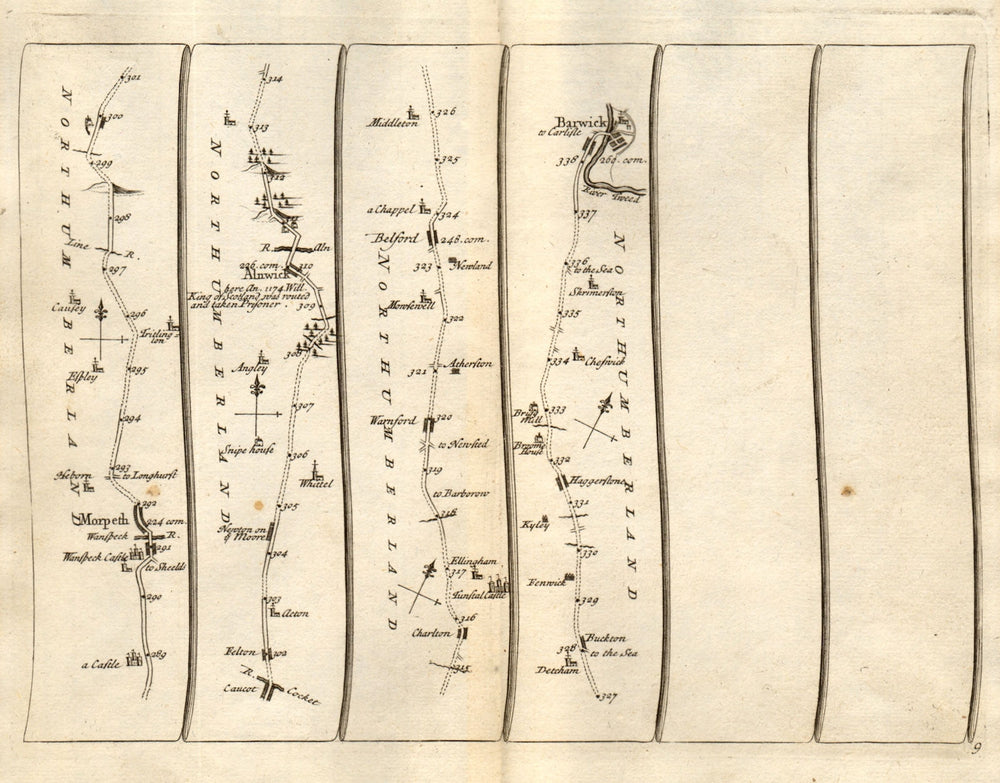 301
300
299
298
Line R.
297
296
Causey
Tritling-
ton
295
Espley
294
293
Heborn
to Longhurst
292
Morpeth
224 com.
Wansbeck R.
291
Wansbeck Castle
to Sheelds
290
289
a Castle
NORTHUMBERLAN
D
314
313
312
R. Aln
226. com. 310
Alnwick
here An. 1174. Will.
King of Scotland was routed
and taken Prisoner.
309
308
Angley
307
Snipe house
306
Whittel
305
Newton on
ye Moore
304
303
Acton
Felton 302
R.
Caucot Cocket
NORTHUMBERLAND
326
Middleton
325
a Chappel
324
Belford 248. com.
323 Newland
Mowsewell
322
Atherston
321
Warnford 320
to Newsted
319
to Barborow
318
Ellingham
317
Tunstal Castle
316
Charlton
315
NORTHUMBERLAND
Barwick
to Carlisle
338 260. com.
River Tweed
337
336
to the Sea
Skrimerston
335
334 Cheswick
333
Brigg
Mill
Broome
House
332
Haggerstone
331
Kyley
330
Fenwick
329
Buckton
328 to the Sea
Detcham
327
NORTHUMBERLAND
9